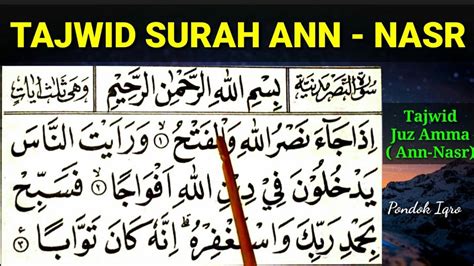 TAJWID SURAH ANN - NASR
سورة النصر مدنية
بِسْمِ اللّٰهِ الرَّحْمٰنِ الرَّحِيْمِ
وهي ثلث ايات
اِذَا جَآءَ نَصْرُ اللّٰهِ وَالْفَتْحُ ۙ﴿١﴾ وَرَاَيْتَ النَّاسَ
يَدْخُلُوْنَ فِيْ دِيْنِ اللّٰهِ اَفْوَاجًا ۙ﴿٢﴾ فَسَبِّحْ
بِحَمْدِ رَبِّكَ وَاسْتَغْفِرْهُ ۗ اِنَّهٗ كَانَ تَوَّابًا ﴿٣﴾
Tajwid
Juz Amma
( Ann-Nasr)
Pondok Iqro